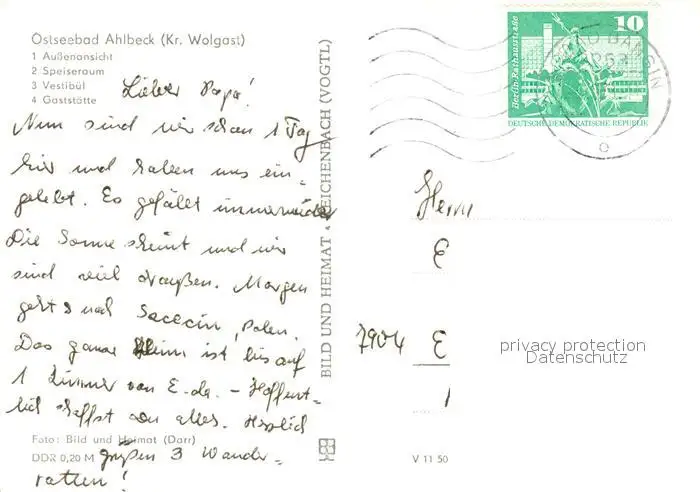 Ostseebad Ahlbeck (Kr. Wolgast)
1 Außenansicht
2 Speiseraum
3 Vestibül
4 Gaststätte
Lieber Papa!
Nun sind wir schon 1 Tag
hier und haben uns ein-
gelebt. Es gefällt immer wieder
Die Sonne scheint und wir
sind viel draußen. Morgen
geht's nach Szczecin, Polen.
Das ganze Heim ist bis auf
1 Zimmer von E. da. - Hoffent-
lich schaffst du alles. Herzlich
grüßen 3 Wander-
ratten!
Foto: Bild und Heimat (Darr)
DDR 0,20 M
BILD UND HEIMAT REICHENBACH (VOGTL)
V 11 50
Berlin, Rathausstraße
10
DEUTSCHE DEMOKRATISCHE REPUBLIK
BANSIN
Herrn
E
7904 E
privacy protection
Datenschutz